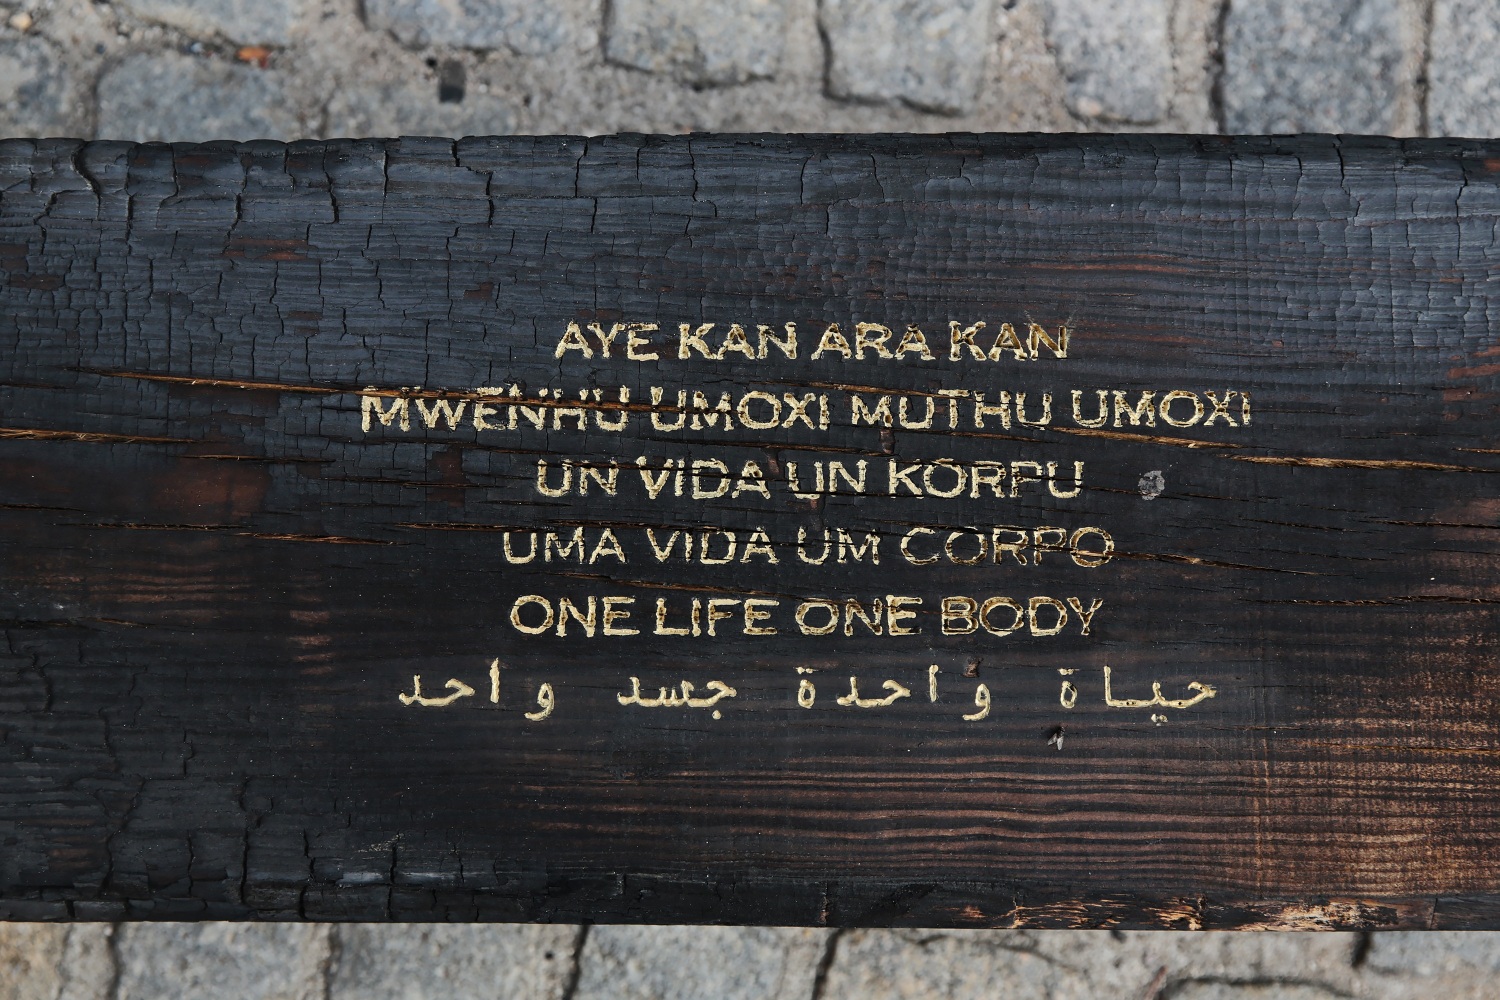 AYE KAN ARA KAN
MWENHU UMOXI MUTHU UMOXI
UN VIDA UN KORPU
UMA VIDA UM CORPO
ONE LIFE ONE BODY
حياة واحدة جسد واحد